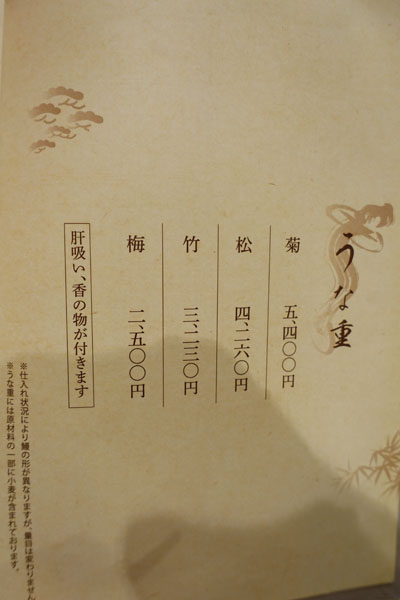 うな重
菊 五、四〇〇円
松 四、二六〇円
竹 三、二三〇円
梅 二、五〇〇円
肝吸い、香の物が付きます
※仕入れ状況により鰻の形が異なりますが、量目は変わりません
※うな重には原材料の一部に小麦が含まれております。